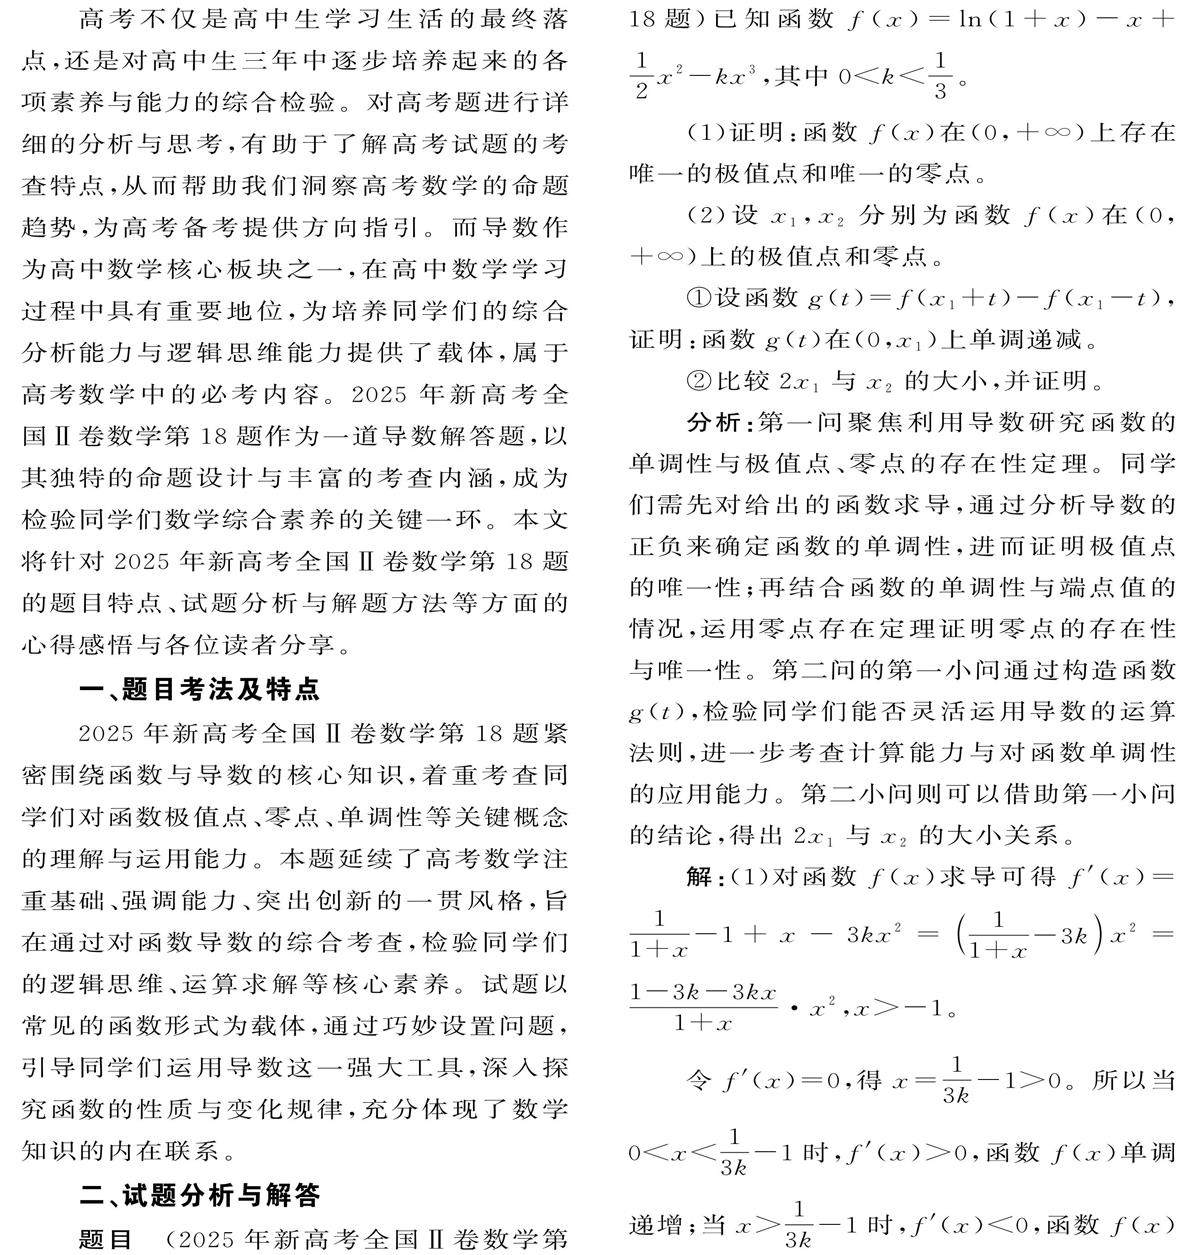 高考不仅是高中生学习生活的最终落
点,还是对高中生三年中逐步培养起来的各
项素养与能力的综合检验。对高考题进行详
细的分析与思考,有助于了解高考试题的考
查特点,从而帮助我们洞察高考数学的命题
趋势,为高考备考提供方向指引。而导数作
为高中数学核心板块之一,在高中数学学习
过程中具有重要地位,为培养同学们的综合
分析能力与逻辑思维能力提供了载体,属于
高考数学中的必考内容。2025 年新高考全
国Ⅱ卷数学第 18 题作为一道导数解答题,以
其独特的命题设计与丰富的考查内涵,成为
检验同学们数学综合素养的关键一环。本文
将针对 2025 年新高考全国Ⅱ卷数学第 18 题
的题目特点、试题分析与解题方法等方面的
心得感悟与各位读者分享。
一、题目考法及特点
2025 年新高考全国Ⅱ卷数学第 18 题紧
密围绕函数与导数的核心知识,着重考查同
学们对函数极值点、零点、单调性等关键概念
的理解与运用能力。本题延续了高考数学注
重基础、强调能力、突出创新的一贯风格,旨
在通过对函数导数的综合考查,检验同学们
的逻辑思维、运算求解等核心素养。试题以
常见的函数形式为载体,通过巧妙设置问题,
引导同学们运用导数这一强大工具,深入探
究函数的性质与变化规律,充分体现了数学
知识的内在联系。
二、试题分析与解答
题目 (2025 年新高考全国Ⅱ卷数学第
18 题)已知函数 f(x)=ln(1+x)-x+
1/2 x²-kx³,其中 0<k<1/3。
(1)证明:函数 f(x)在(0,+∞)上存在
唯一的极值点和唯一的零点。
(2)设 x₁,x₂ 分别为函数 f(x)在(0,
+∞)上的极值点和零点。
①设函数 g(t)=f(x₁+t)-f(x₁-t),
证明:函数 g(t)在(0,x₁)上单调递减。
②比较 2x₁ 与 x₂ 的大小,并证明。
分析:第一问聚焦利用导数研究函数的
单调性与极值点、零点的存在性定理。同学
们需先对给出的函数求导,通过分析导数的
正负来确定函数的单调性,进而证明极值点
的唯一性;再结合函数的单调性与端点值的
情况,运用零点存在定理证明零点的存在性
与唯一性。第二问的第一小问通过构造函数
g(t),检验同学们能否灵活运用导数的运算
法则,进一步考查计算能力与对函数单调性
的应用能力。第二小问则可以借助第一小问
的结论,得出 2x₁ 与 x₂ 的大小关系。
解:(1)对函数 f(x)求导可得 f′(x)=
1/(1+x)-1+x-3kx²=(1/(1+x)-3k)x²=
(1-3k-3kx)/(1+x)·x²,x>-1。
令 f′(x)=0,得 x=1/(3k)-1>0。所以当
0<x<1/(3k)-1 时,f′(x)>0,函数 f(x)单调
递增;当 x>1/(3k)-1 时,f′(x)<0,函数 f(x)